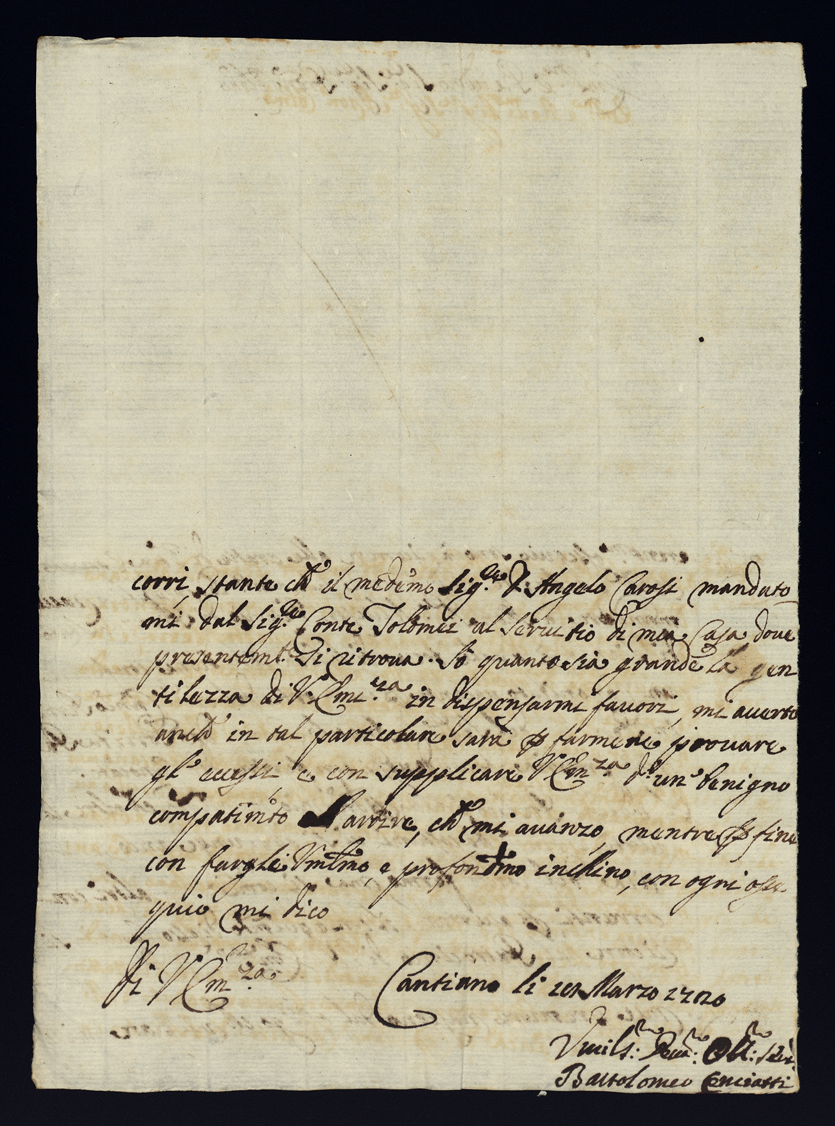 corri, stante che il medemo Sig.re D. Angelo Carosi mandato
mi dal Sig.re Conte Tolomei al servitio di mia Casa dove
presentemt. si ritrova. Sò quanto sia grande la gen
tilezza di V. Em.za in dispensarmi favori, mi averto
anch' in tal particolare sarà p farmene provare
gl' eccessi, e con supplicare V. Em.za d' un' benigno
compatimto l'ardire, ch' mi avanzo, mentre p fine
con fargli Vmilmo, e profondmo inchino, con ogni osse
quio mi dico
Di V. Em.za
Cantiano li Marzo 1720
Vmils: Deu: Obl: Ser:
Bartolomeo